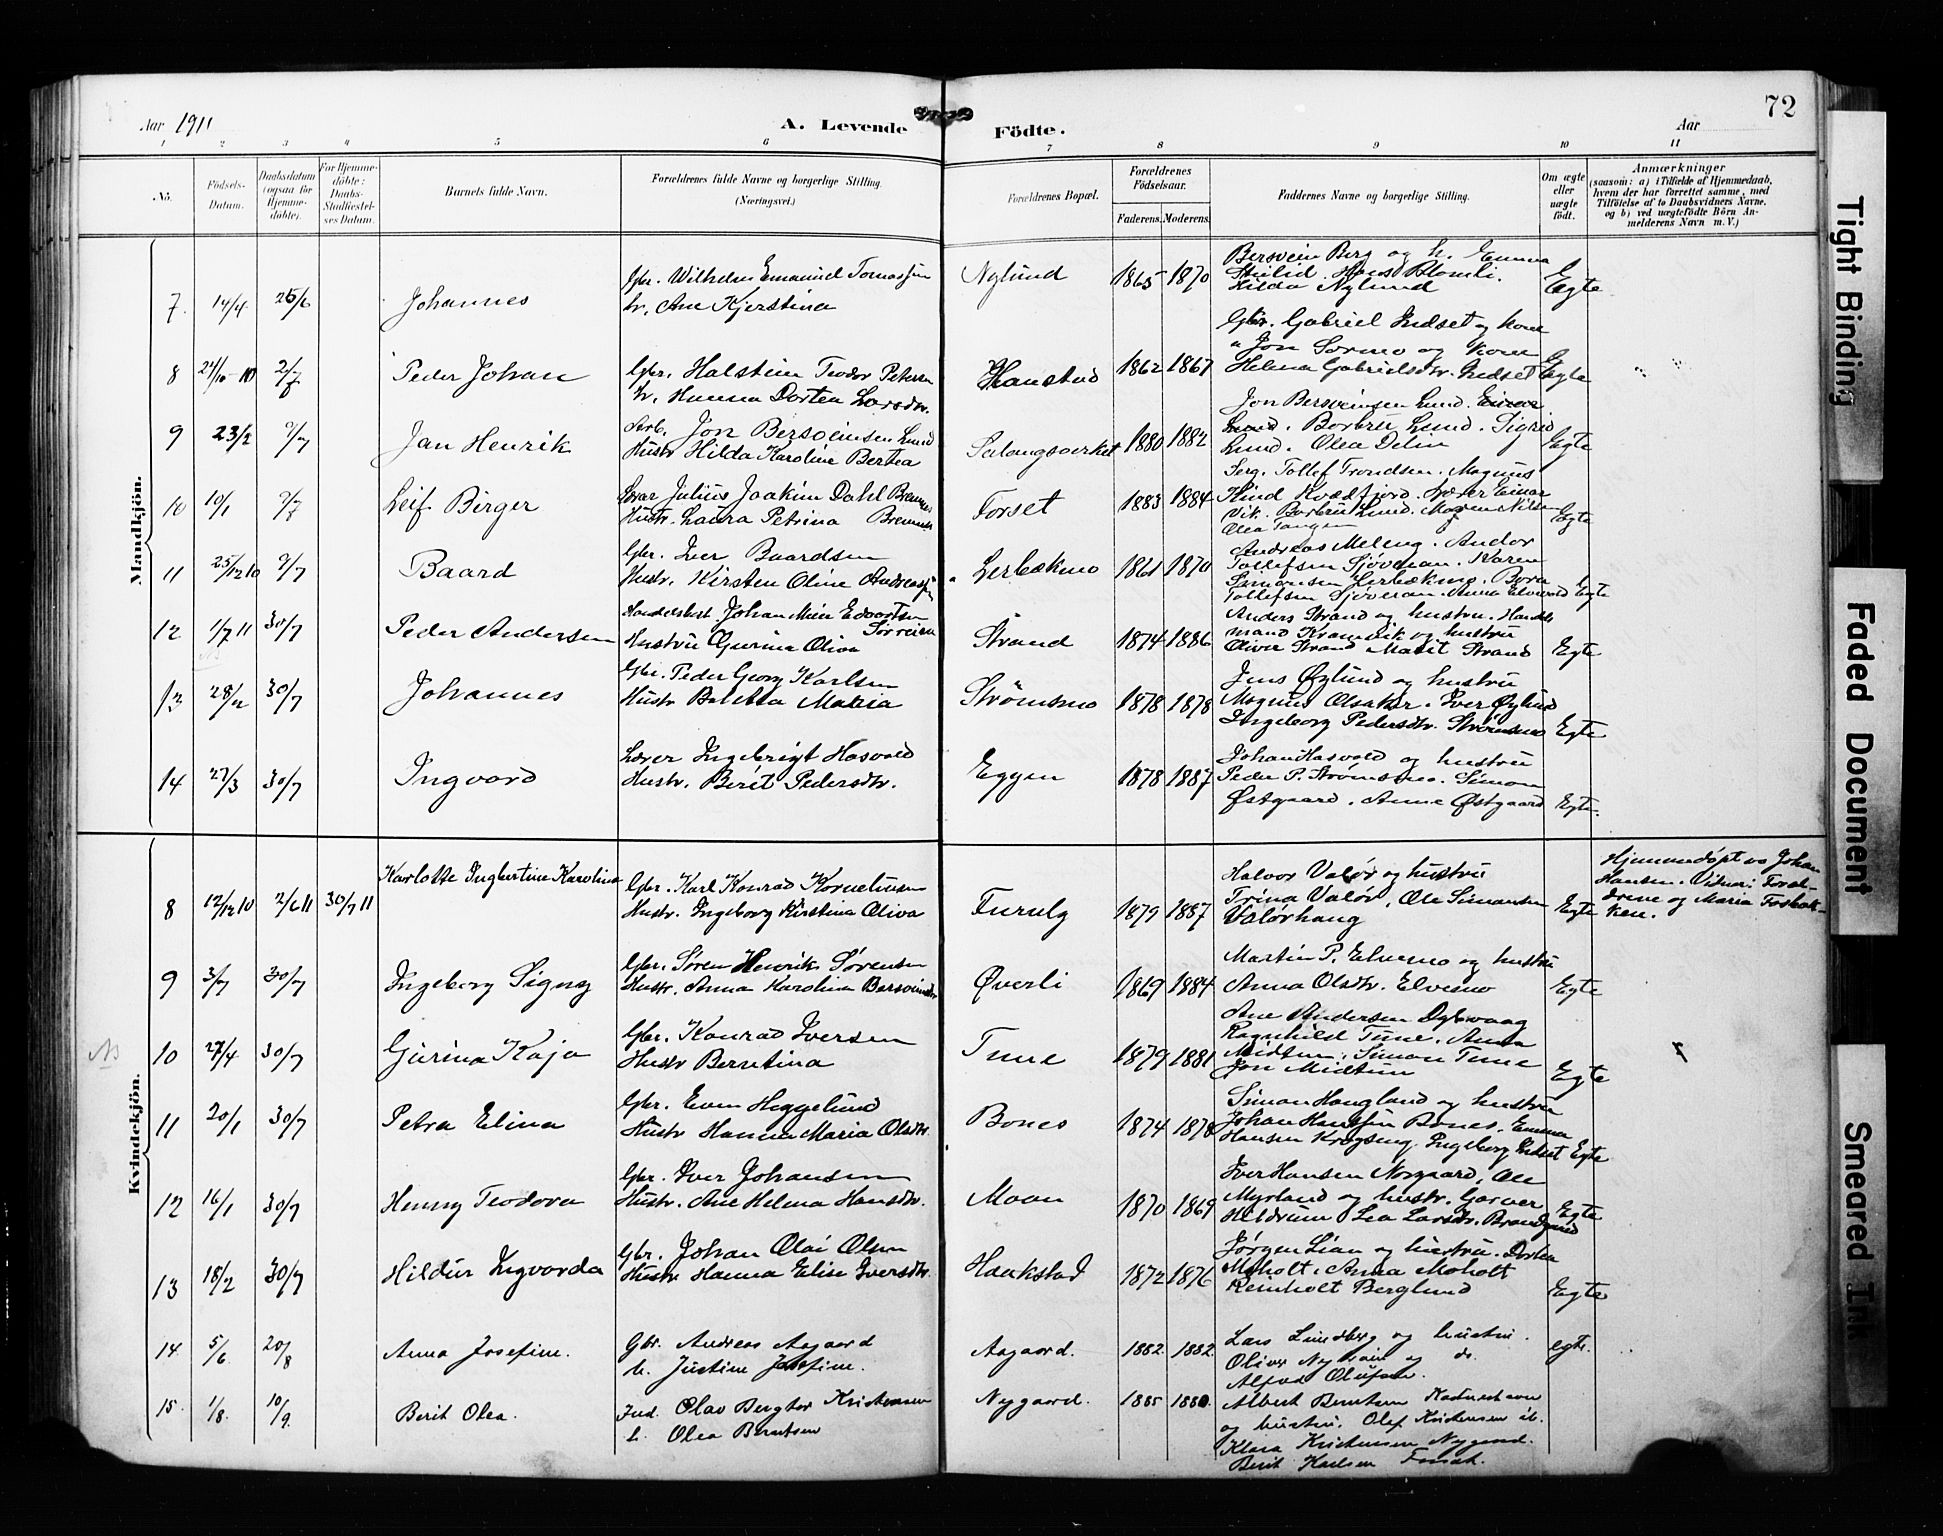 Aar 1911
A. Levende Födte.
Aar
72
1 2 3 4 5 6 7 8 9 10 11
No.
Födsels-Datum.
Daabsdatum (ogsaa for Hjemmedöbte).
For Hjemmedöbte: Daabs-Stadfæstelses Datum.
Barnets fulde Navn.
Forældrenes fulde Navne og borgerlige Stilling. (Næringsvei.)
Forældrenes Bopæl.
Forældrenes Födselsaar.
Faderens. Moderens.
Faddernes Navne og borgerlige Stilling.
Om ægte eller uægte födt.
Anmærkninger
(saasom: a) i Tilfælde af Hjemmedaab, hvem der har forrettet samme, med Tilföielse af to Daabsvidners Navne, og b) ved uægtefödte Börn Anmelderens Navn m. V.)
Mandkjön.
7 14/4 25/6 Johannes
Gbr. Wilhelm Emanuel Tomassen
h. Ane Kjerstina
Nylund 1865 1870
Bersvein Berg og h. Emma
Hans Blomli.
Hilda Nylund
Egte
8 21/10-10 2/7 Peder Johan
Gbr. Halstein Teodor Petersen
h. Hanna Dortea Larsdtr.
Hanstad 1862 1867
Gbr. Gabriel Indset og kone
" Jon Sørmo og kone
Helena Gabrielsdtr. Indset
Egte
9 23/2 9/7 Jan Henrik
Arb. Jon Bersveinsen Lund
Hustr Hilda Karoline Bertea
Salangsverket 1880 1882
Jon Bersveinsen Lund. Einar
Lund. Borbræ Lund. Sigrid
Lund. Olea Delin
Egte
10 10/1 9/7 Leif Birger
Lærer Julius Joakim Dahl Bremnes
Hustr. Laura Petrina Bremnes
Forset 1883 1884
Serg. Tollef Trondsen. Magnus
Hind Kvædfjord. Lærer Einar
Vik. Lund. Nilsen
Olea Tangen
Egte
11 25/12 10 9/7 Baard
Gbr. Iver Baardsen
Hustr. Kirsten Oline Andreassen
Lerbækmo 1861 1870
Andreas Meleng. Andor
Tollefsen Sjøvegan. Karen
Simonsen Lerbækmo. Bora
Tollefsen Sjøvegan. Anna Elverod
Egte
12 1/7 11 30/7 Peder Andersen
Handelsbest. Johan Meier Edvartsen
Sørreisen
Hustru Gurina Oliva
Strand 1874 1886
Anders Strand og hustru. Handelsmand Kramvik og hustru
Oliver Strand Marit Strand
Egte
13 28/12 30/7 Johannes
Gbr. Peder Georg Karlsen
Hustr Baletta Matea
Strømsmo 1878 1878
Jens Øylund og hustru
Magnus Olsaker. Iver Øylund
Ingeborg Pedersdtr. Strømsmo
Egte
14 27/3 30/7 Ingvard
Lærer Ingebrigt Hasvold
Hustr. Berit Pedersdtr.
Eggen 1878 1887
Johan Hasvold og hustru
Peder P. Strømsmo. Simon
Østgaard. Anne Østgaard
Egte.
Kvindekjön.
8 12/12 10 2/6 11 30/7 11 Karlotte Ingbertine Karolina
Gbr. Karl Konrad Korneliusen
Hustr. Ingeborg Kirstina Oliva
Furuly 1879 1887
Halvor Valør og hustru
Trina Valør, Ole Simonsen
Valørhaug
Egte
Hjemmedøpt av Johan
Hansen. Vitner: Foreldrene og Maria Fosbakken.
9 3/7 30/7 Ingeborg Signy
Gbr. Søren Henrik Sørensen
Hustr. Anna Karolina Bersveinsdtr
Øverli 1869 1884
Martin P. Elvesmo og hustru
Anna Olsdtr. Elvesmo
Egte
NB
10 27/4 30/7 Gurina Kaja
Gbr. Konrad Iversen
Hustr Berntina
Tune 1879 1881
Ane Andersen Dybvaag
Ragnhild Tune. Anna
Midtun, Simon Tune
Jon Midtun
Egte
11 20/1 30/7 Petra Elina
Gbr. Even Heggelund
Hustr Hanna Maria Olsdtr.
Bones 1874 1878
Simon Haugland og hustru
Johan Hansen Bones. Emma
Hansen Krogseng. Ingeborg Indset
Egte
12 16/1 30/7 Henny Teodora
Gbr. Iver Johansen
Hustr. Ane Helena Hansdtr.
Moan 1870 1869
Iver Hansen Norgaard. Ole
Myrland og hustr. Garver
Heldrum Lea Larsdtr. Brandsund
Egte
13 18/2 30/7 Hildur Ingvarda
Gbr. Johan Olai Olsen
Hustr Hanna Elise Iversdtr.
Haakstad 1872 1876
Jørgen Lian og hustru. Dortea
Moholt. Anna Moholt
Reinholt Berglund
Egte
14. 5/6 20/8 Anna Josefine.
Gbr. Andreas Aagaard
h. Justine Josefine.
Aagaard. 1882. 1882.
Lars Lundberg og hustru.
Oliver og do.
Alfred Olufsen.
egte.
15. 1/8. 10/9. Berit Olea.
Ind. Olav Bergtor Kristensen
h. Olea Berntsen
Nygaard. 1885 1880.
Albert Berntsen
og hustru. Olef Kristensen ib.
Klara Kristensen Nygaard.
Berit Karlsen Fossæt.
Tight Binding
Faded Document
Smeared Ink